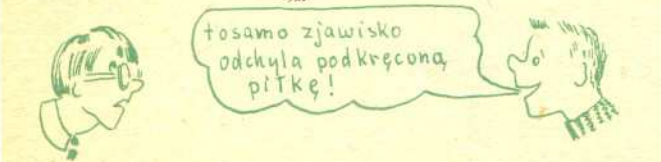 tosamo zjawisko
odchyla podkręconą
piłkę!